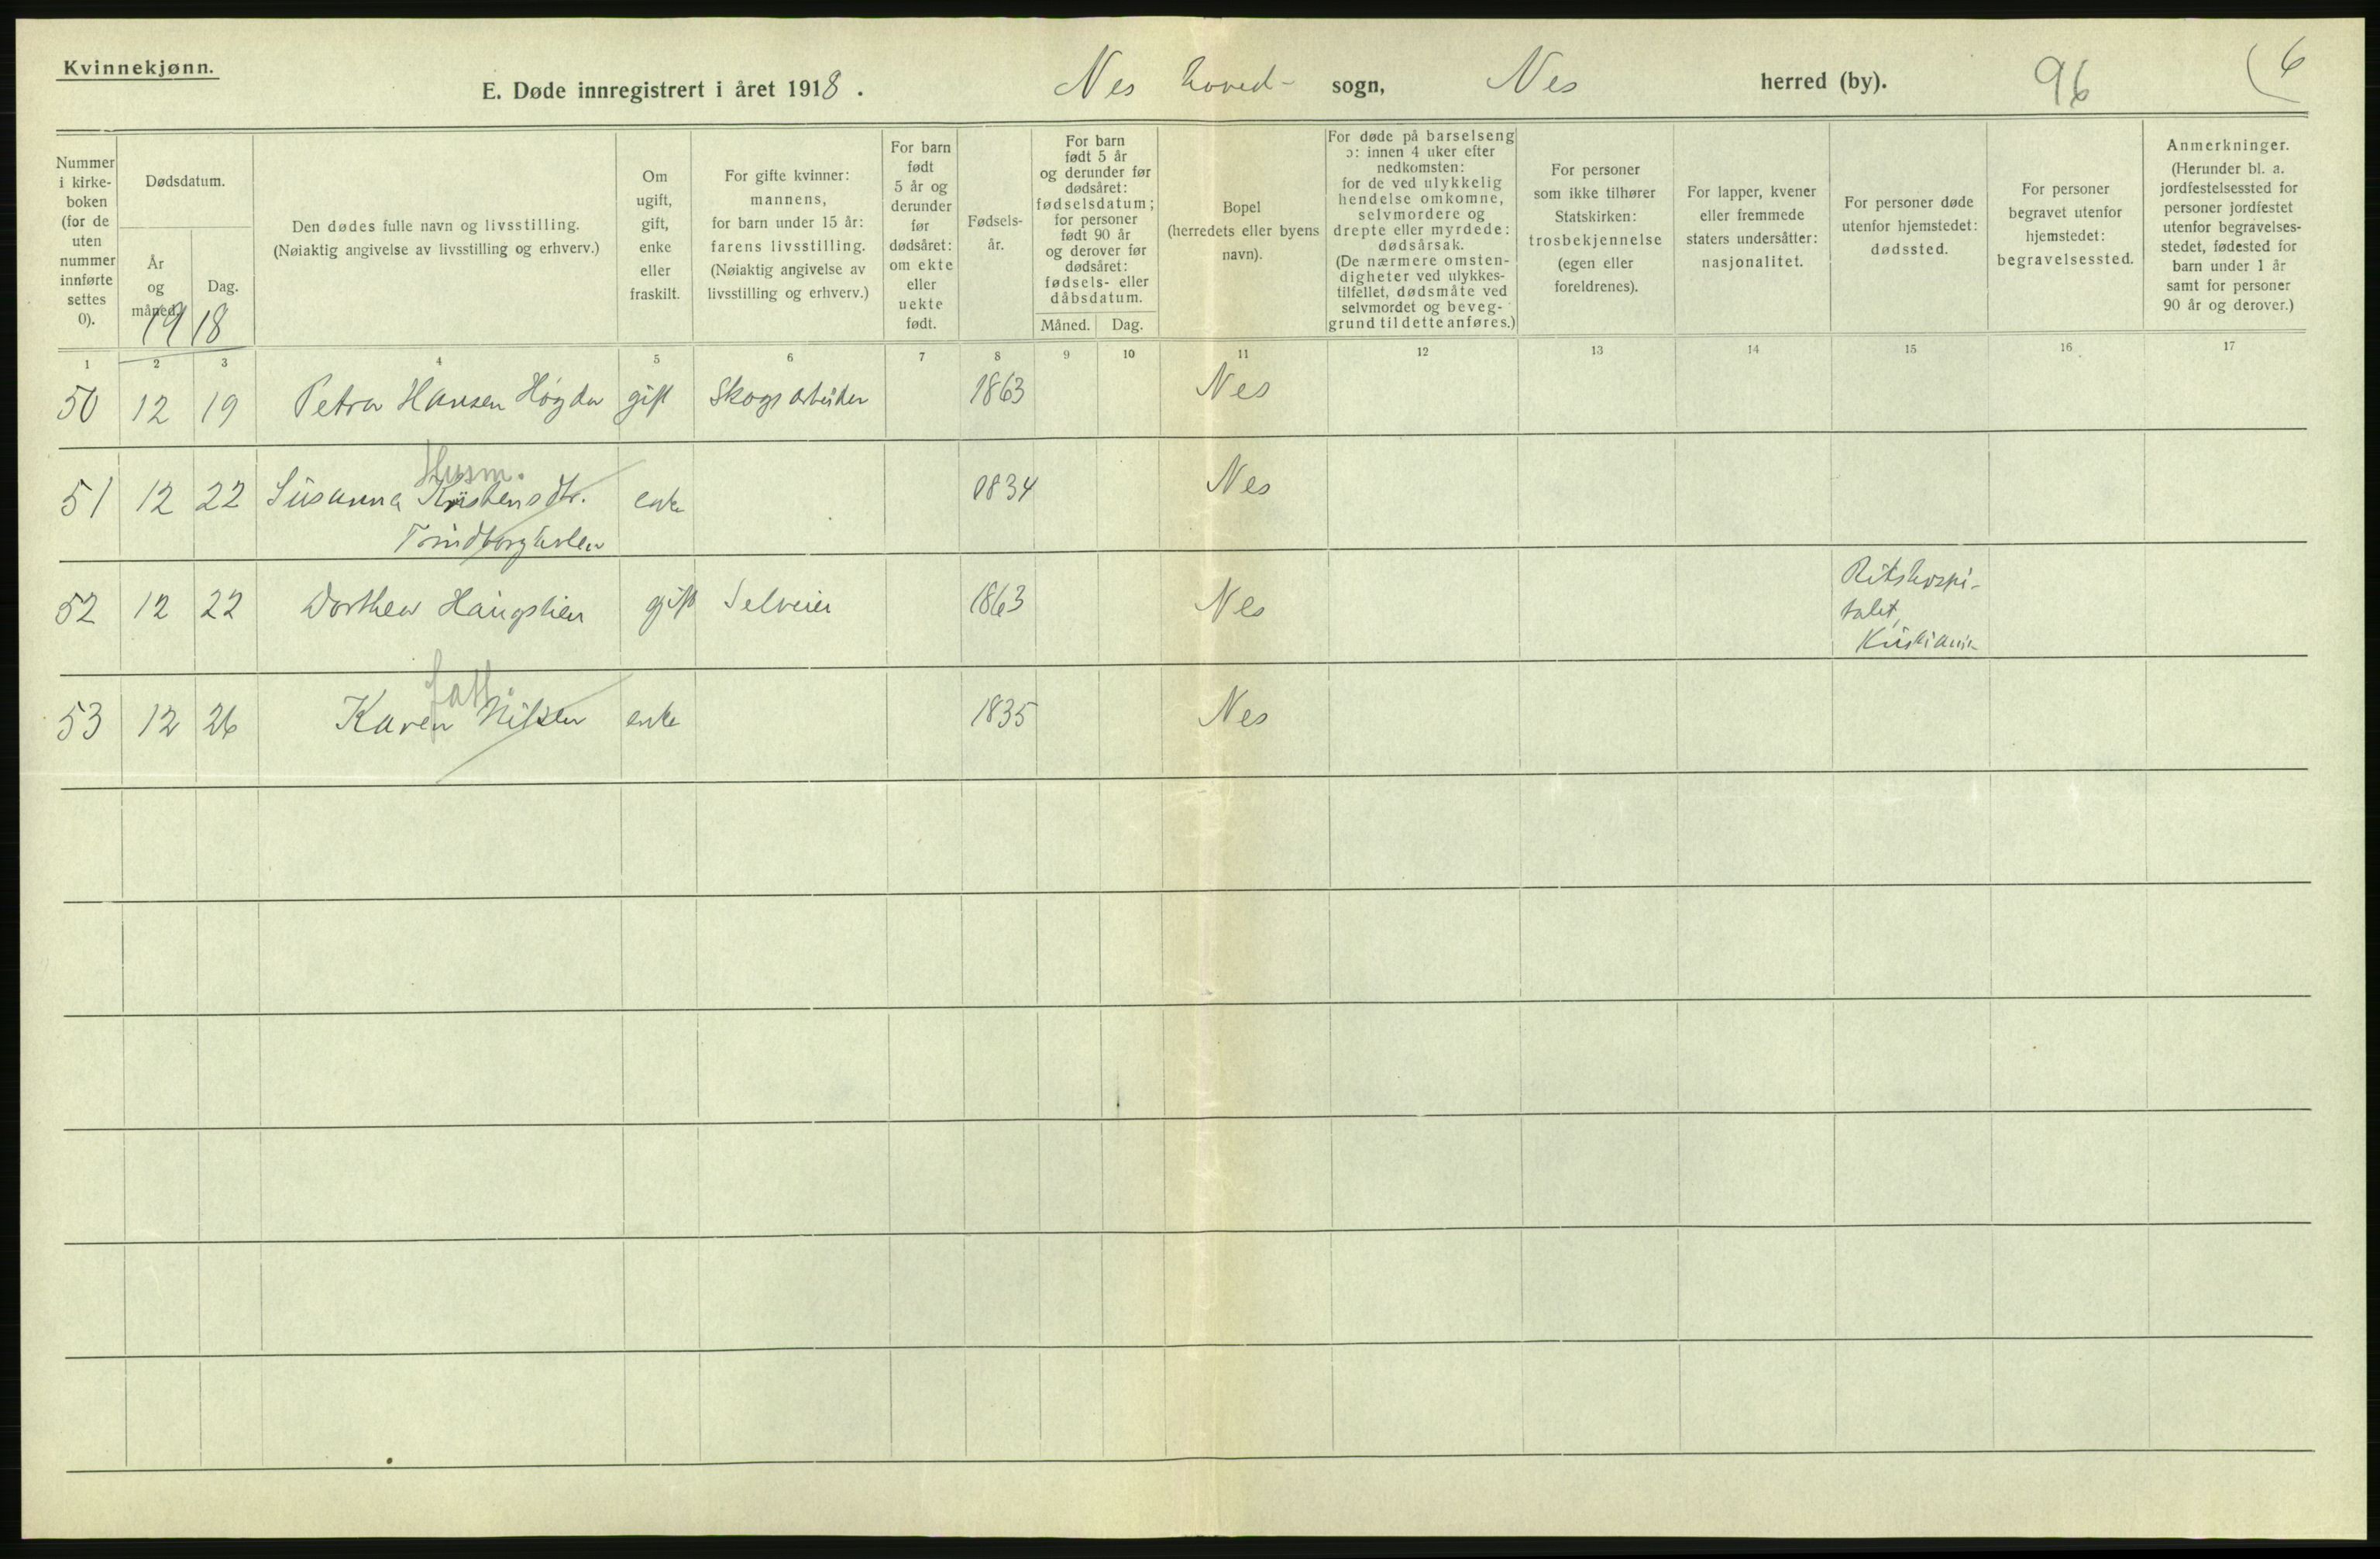 Kvinnekjønn.
E. Døde innregistrert i året 1918. Nes hoved- sogn, Nes herred (by). 96 (6
Nummer i kirke-boken (for de uten nummer innførte settes 0).
Dødsdatum.
År og måned.
Dag.
1918
Den dødes fulle navn og livsstilling.
(Nøiaktig angivelse av livsstilling og erhverv.)
Om ugift, gift, enke eller fraskilt.
For gifte kvinner: mannens, for barn under 15 år: farens livsstilling. (Nøiaktig angivelse av livsstilling og erhverv.)
For barn født 5 år og derunder før dødsåret: om ekte eller uekte født.
Fødsels-år.
For barn født 5 år og derunder før dødsåret: fødselsdatum; for personer født 90 år og derover før dødsåret: fødsels- eller dåbsdatum.
Måned. Dag.
Bopel (herredets eller byens navn).
For døde på barselseng ɔ: innen 4 uker efter nedkomsten: for de ved ulykkelig hendelse omkomne, selvmordere og drepte eller myrdede: dødsårsak. (De nærmere omsten-digheter ved ulykkes-tilfellet, dødsmåte ved selvmordet og beveg-grund til dette anføres.)
For personer som ikke tilhører Statskirken: trosbekjennelse (egen eller foreldrenes).
For lapper, kvener eller fremmede staters undersåtter: nasjonalitet.
For personer døde utenfor hjemstedet: dødssted.
For personer begravet utenfor hjemstedet: begravelsessted.
Anmerkninger. (Herunder bl. a. jordfestelsessted for personer jordfestet utenfor begravelses-stedet, fødested for barn under 1 år samt for personer 90 år og derover.)
1 2 3 4 5 6 7 8 9 10 11 12 13 14 15 16 17
50 12 19 Petra Hansen Høgda gift Skogsarbeider 1863 Nes
Husm.
51 12 22 Susanna Kristensdtr. enke 1834 Nes
52 12 22 Dorthea Haugstien gift Selveier 1863 Nes Rikshospi-
talet,
Kristiania
53 12 26 Karen Nilsen enke 1835 Nes